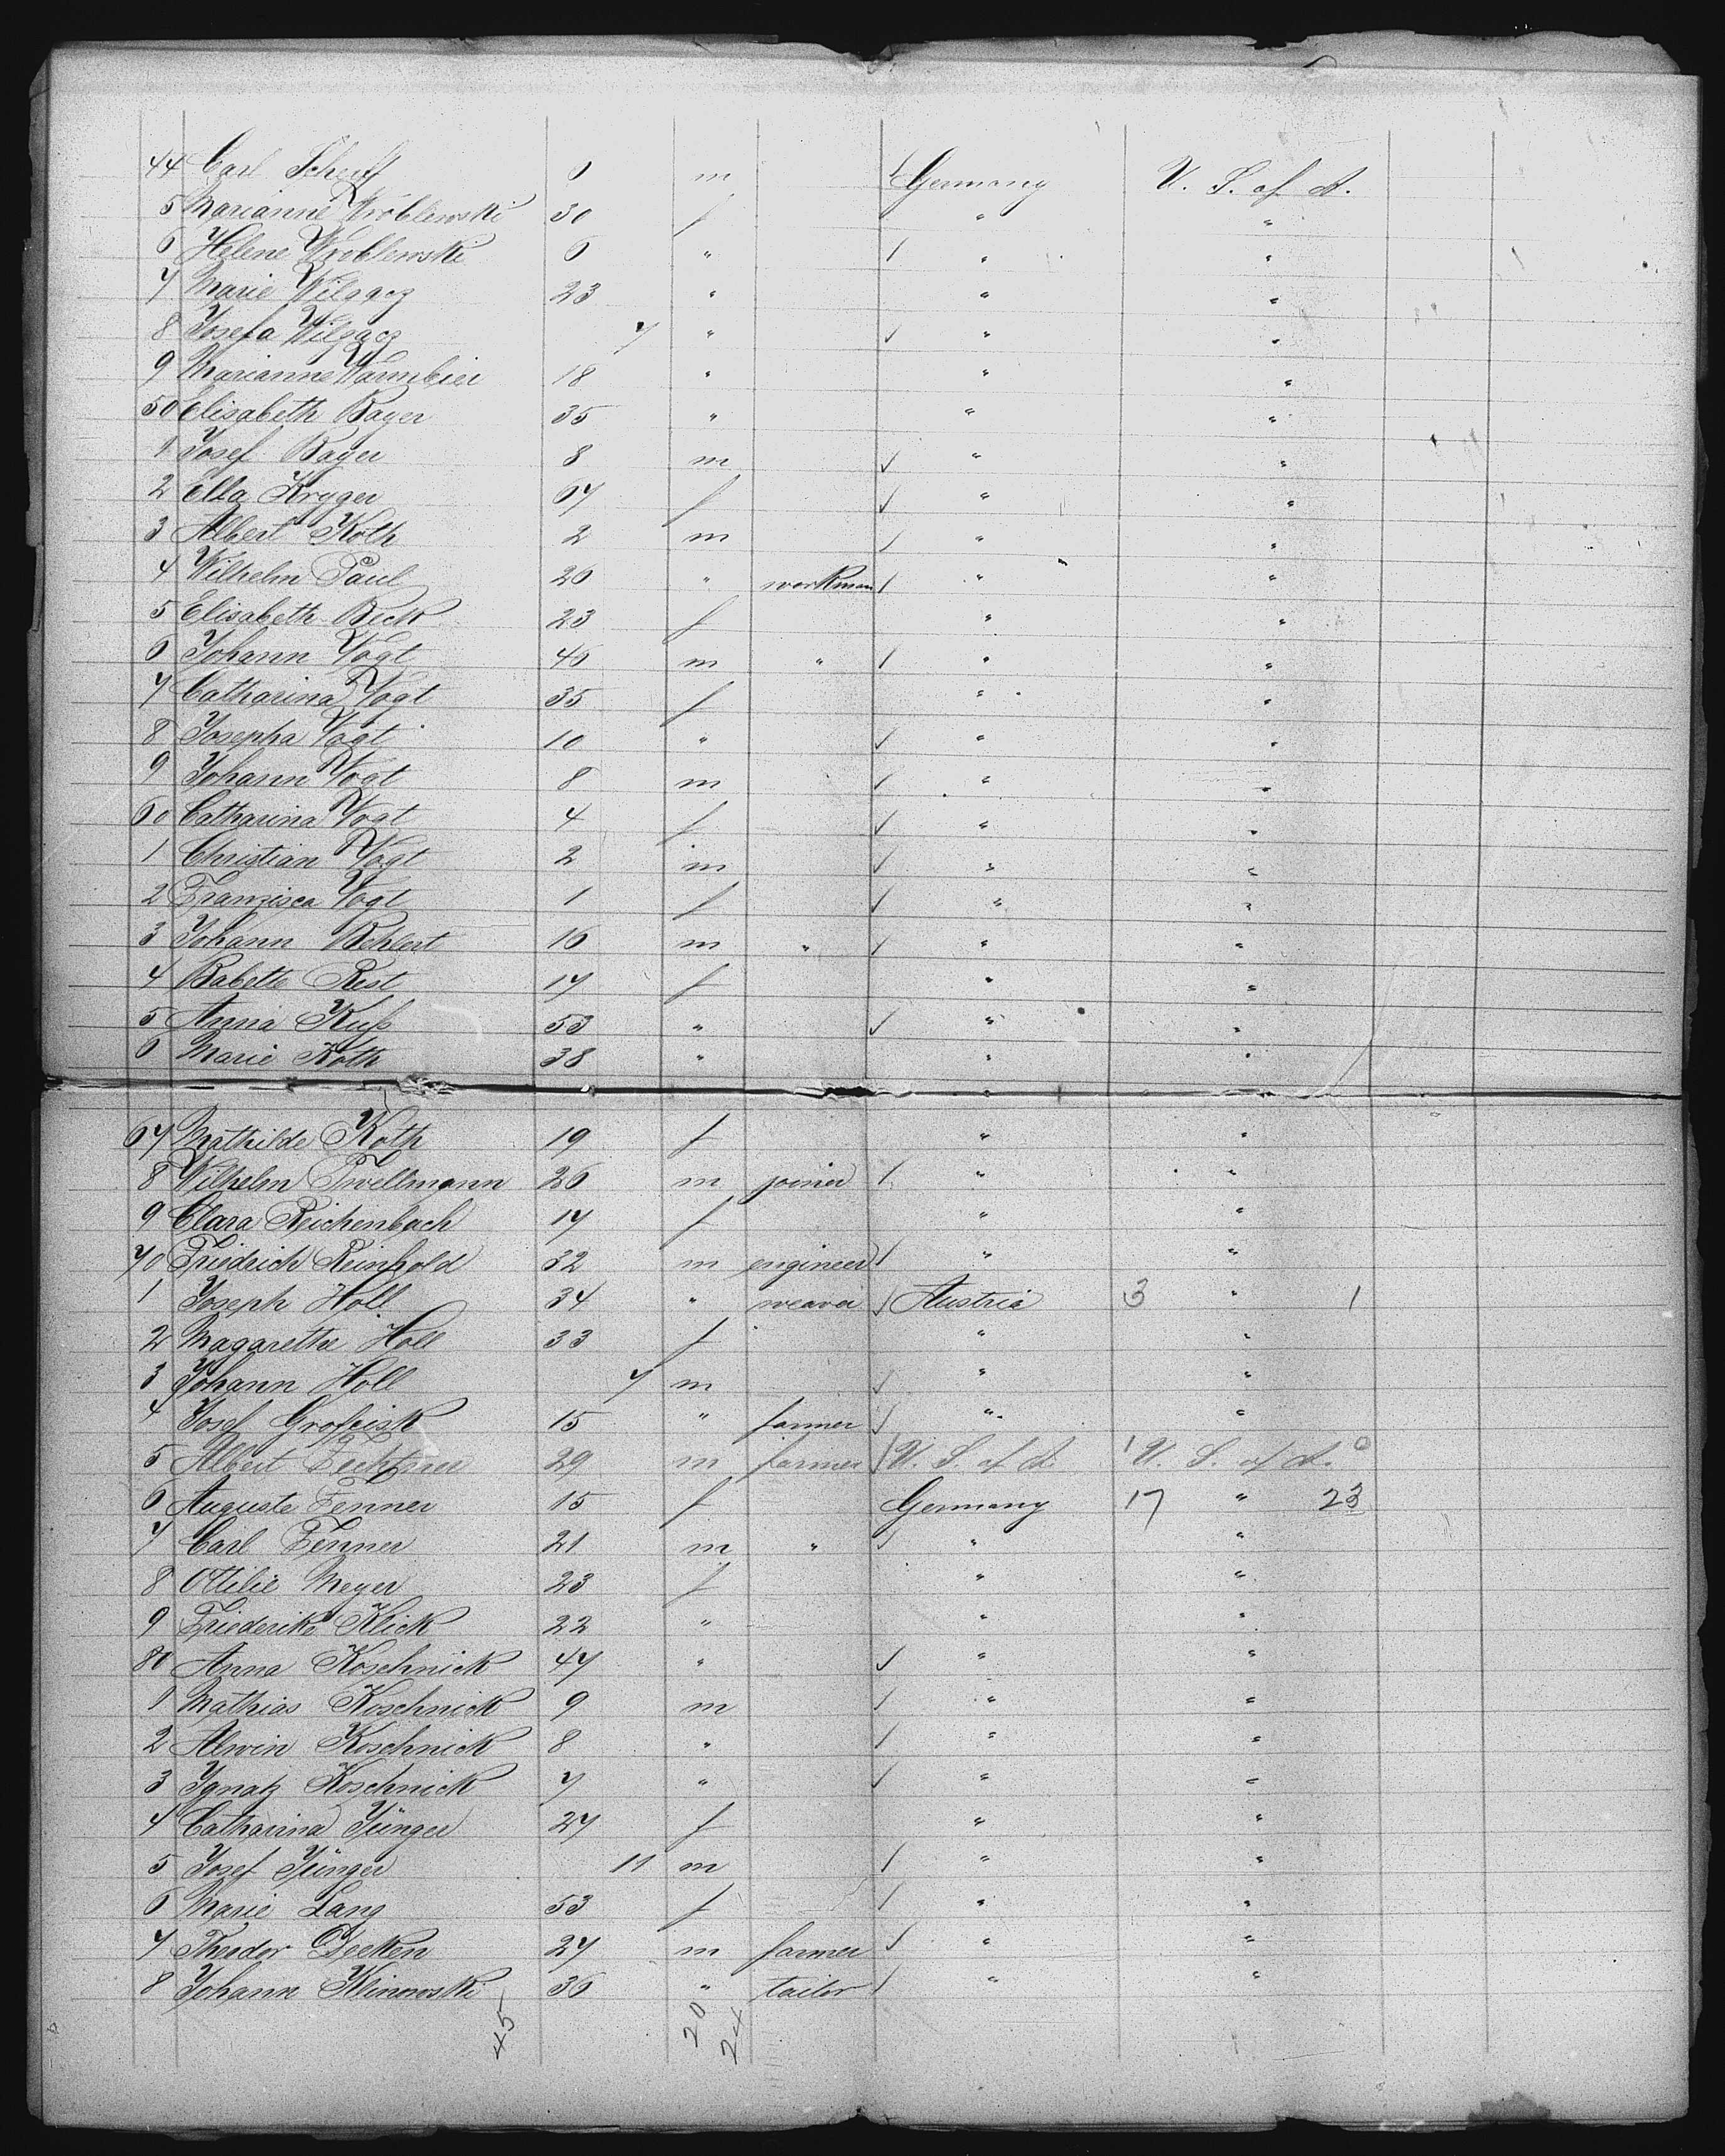 44 Carl Scheuf 6 m Germany U. S. of A.
5 Marianne Wroblewski 30 f " "
6 Helene Wroblewski 6 " " "
7 Marie Wilgacz 23 " " "
8 Josefa Wilgacz 7 " " "
9 Marianne Warmbier 18 " " "
50 Elisabeth Bayer 35 " " "
1 Josef Bayer 8 m " "
2 Ella Kryger 67 f " "
3 Albert Koth 2 m " "
4 Wilhelm Paul 20 " workman " "
5 Elisabeth Beck 23 f " "
6 Johann Vogt 46 m " " "
7 Catharina Vogt 35 f " "
8 Josepha Vogt 10 " " "
9 Johann Vogt 8 m " "
60 Catharina Vogt 4 f " "
1 Christian Vogt 2 m " "
2 Franzisca Vogt 1 f " "
3 Johann Behlert 16 m " " "
4 Babette Rest 17 f " "
5 Anna Kuß 53 " " "
6 Marie Koth 38 " " "
67 Mathilde Koth 19 f " "
8 Wilhelm Twellmann 26 m joiner " "
9 Clara Reichenbach 17 f " "
70 Friedrich Reinhold 32 m engineer " "
1 Joseph Holl 34 " weaver Austria 3 " 1
2 Magarethe Holl 33 f " "
3 Johann Holl 7 m " "
4 Josef 15 " farmer " "
5 Albert 29 m farmer U. S. of A. 1 U. S. of A. 0
6 Auguste Fenner 15 f Germany 17 " 23
7 Carl Fenner 21 m " " "
8 Ottilie Meyer 23 f " "
9 Friederike Klick 22 " " "
80 Anna Koschnick 47 " " "
1 Mathias Koschnick 9 m " "
2 Alwin Koschnick 8 " " "
3 Ignatz Koschnick 7 " " "
4 Catharina Jünger 27 f " "
5 Josef Jünger 11 m " "
6 Marie Lang 53 f " "
7 Theodor Decken 27 m farmer " "
8 Johann Klinowski 36 " tailor " "
45 20 24